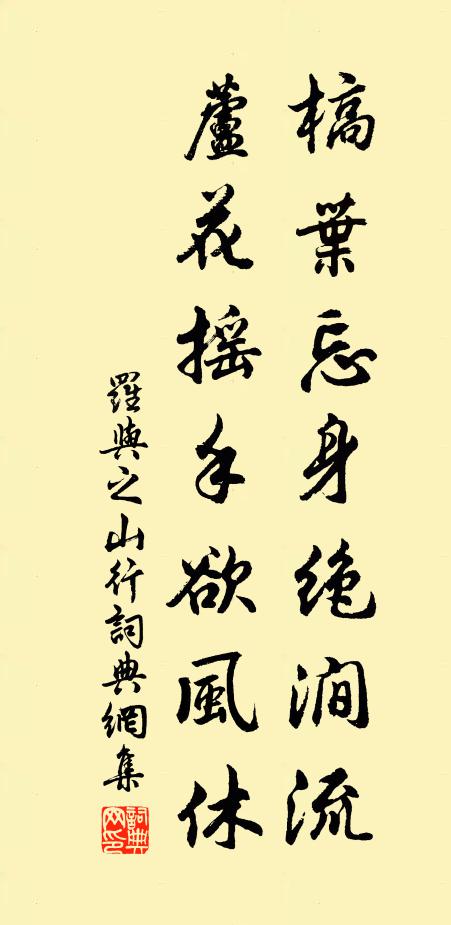 槁葉忘身絶澗流
蘆花摇手欲風休
羅與之山行詞典網集
詞典網印